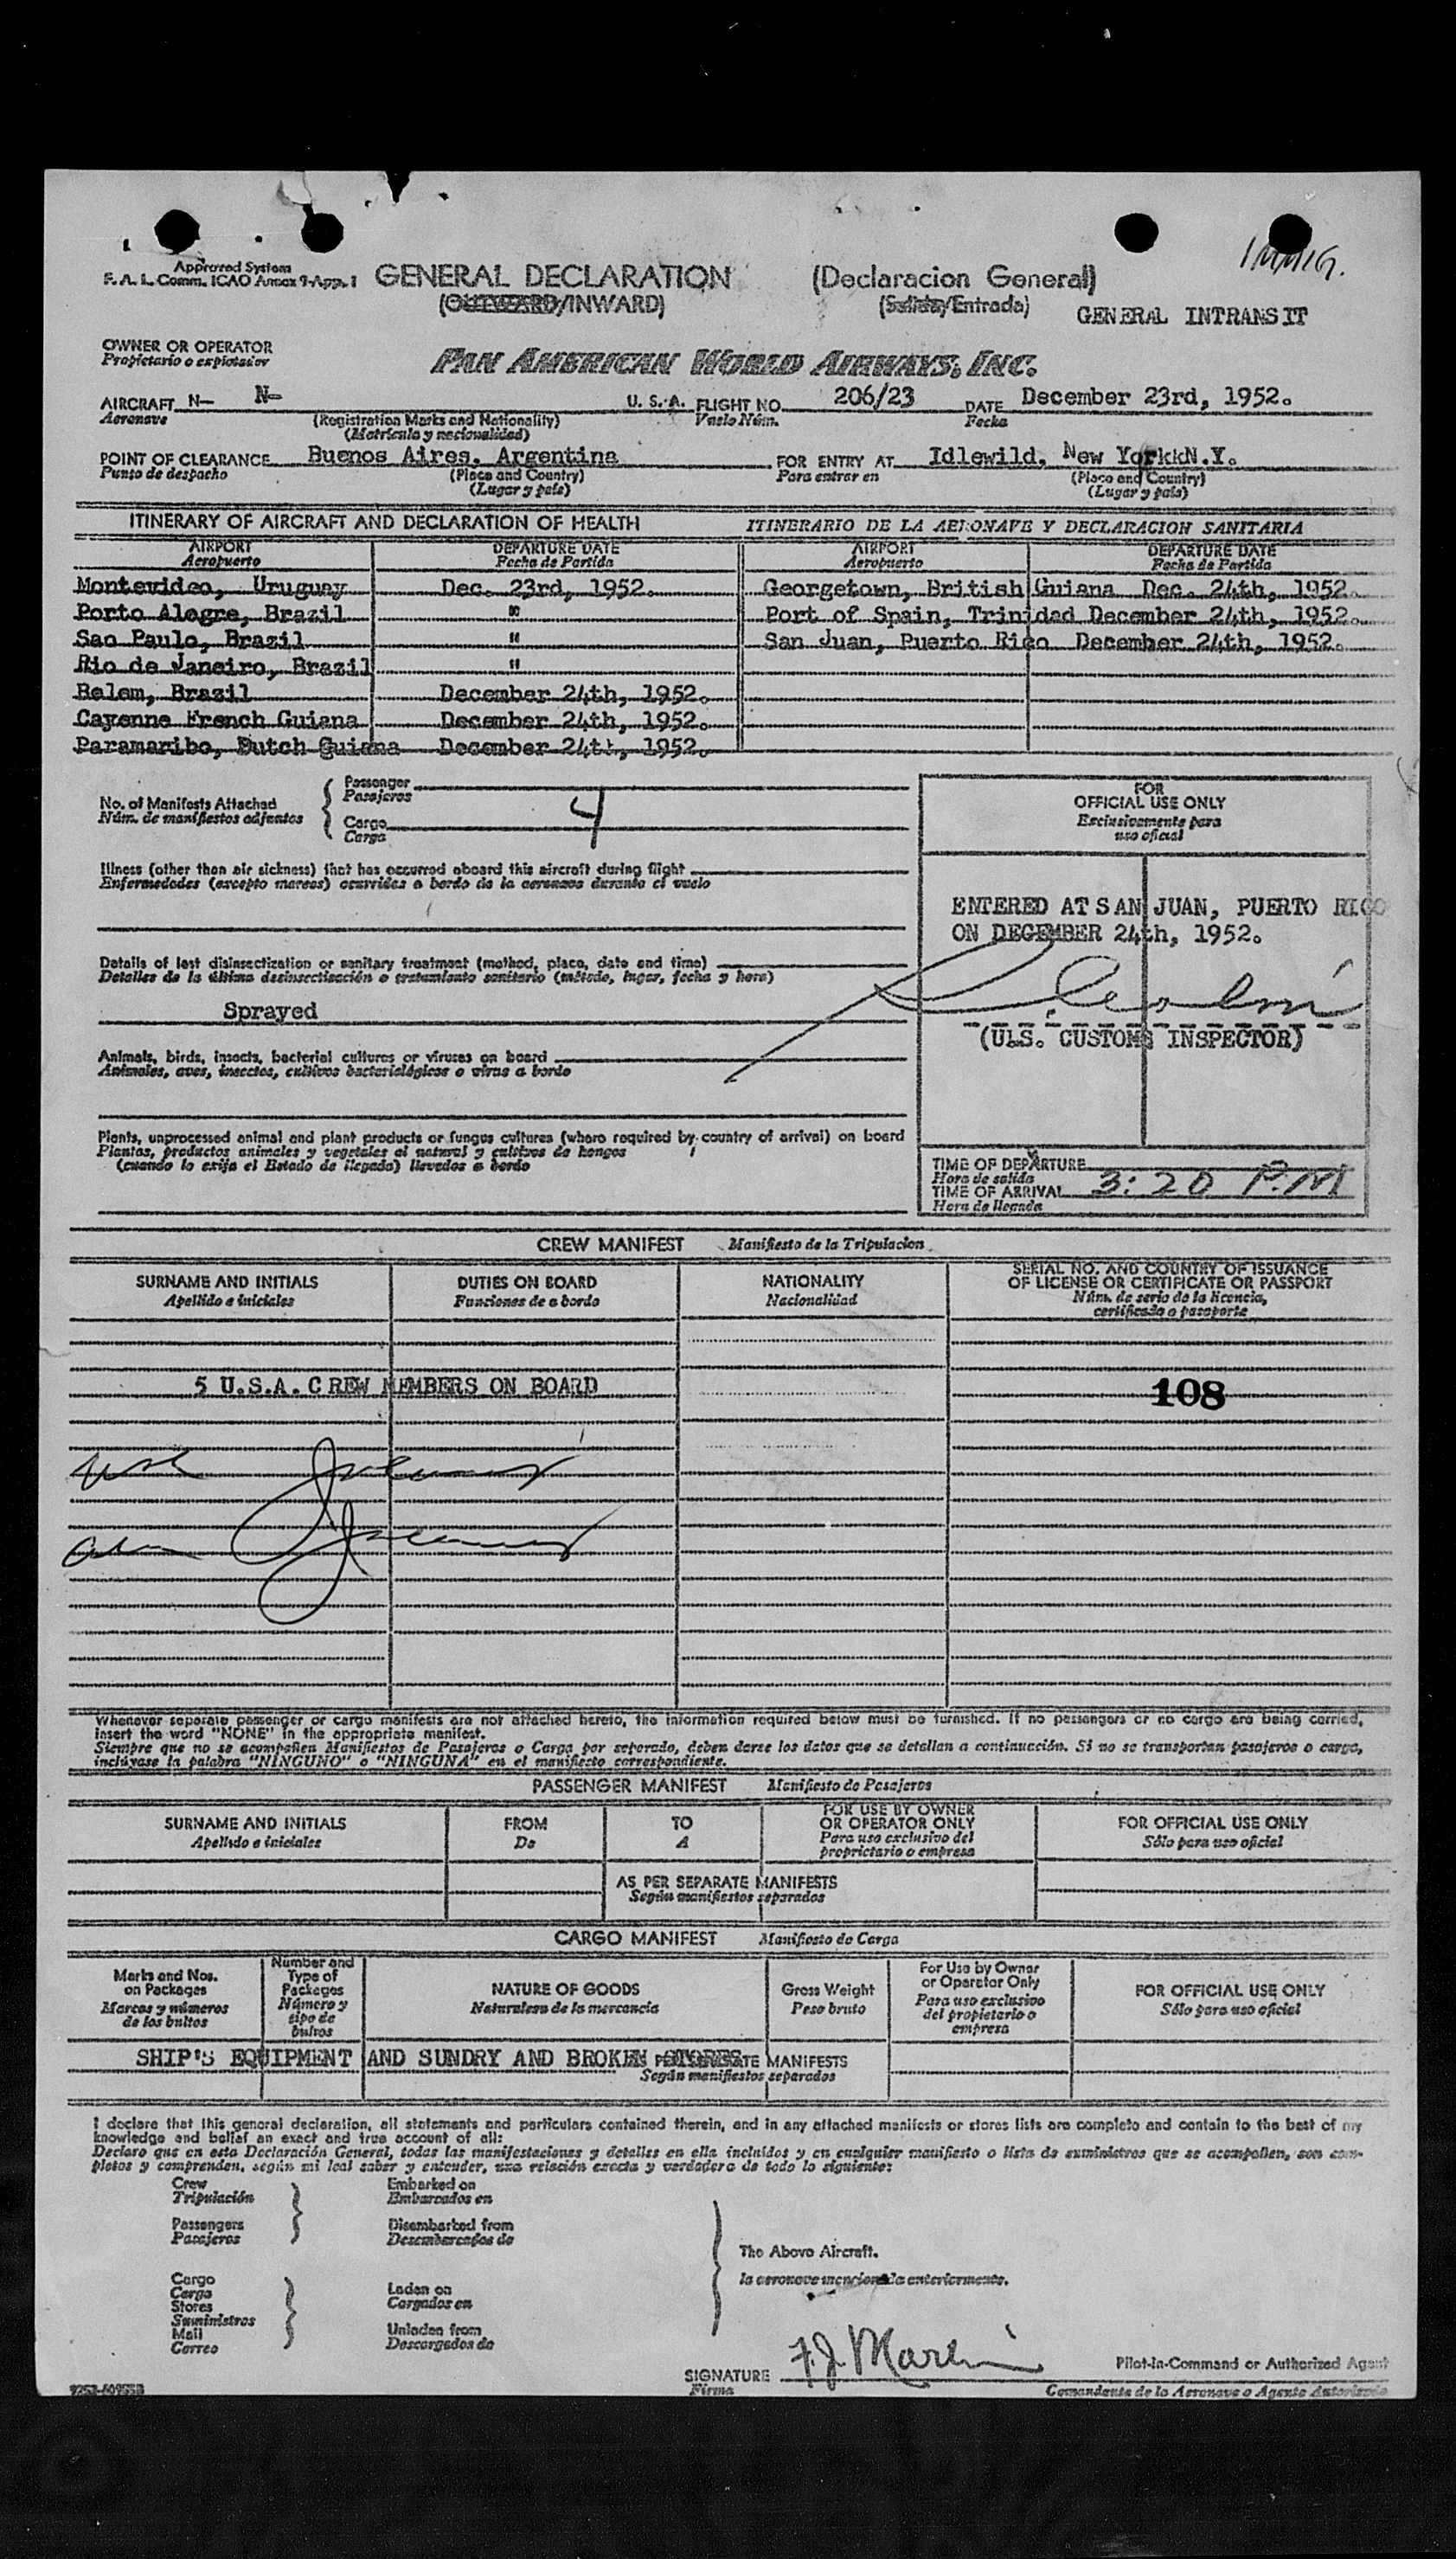 IMMIG.
Approved System
F. A. L. Comm. ICAO Annex 9-App. 1
GENERAL DECLARATION (Declaracion General)
(OUTWARD/INWARD) (Salida/Entrada)
GENERAL INTRANSIT
OWNER OR OPERATOR
Propietario o explotador
PAN AMERICAN WORLD AIRWAYS, INC.
AIRCRAFT N- N- U. S. A. FLIGHT NO. 206/23 DATE December 23rd, 1952.
Aeronave (Registration Marks and Nationality) Vuelo Núm. Fecha
(Matrícula y nacionalidad)
POINT OF CLEARANCE Buenos Aires. Argentina FOR ENTRY AT Idlewild, New YorkkN.Y.
Punto de despacho (Place and Country) Para entrar en (Place and Country)
(Lugar y país) (Lugar y país)
ITINERARY OF AIRCRAFT AND DECLARATION OF HEALTH ITINERARIO DE LA AERONAVE Y DECLARACION SANITARIA
AIRPORT DEPARTURE DATE AIRPORT DEPARTURE DATE
Aeropuerto Fecha de Partida Aeropuerto Fecha de Partida
Montevideo, Uruguay Dec. 23rd, 1952. Georgetown, British Guiana Dec. 24th, 1952.
Porto Alegre, Brazil " Port of Spain, Trinidad December 24th, 1952.
Sao Paulo, Brazil " San Juan, Puerto Rico December 24th, 1952.
Rio de Janeiro, Brazil "
Belem, Brazil December 24th, 1952.
Cayenne French Guiana December 24th, 1952.
Paramaribo, Dutch Guiana December 24th, 1952.
No. of Manifests Attached
Núm. de manifiestos adjuntos
Passenger
Pasajeros
4
Cargo
Carga
FOR
OFFICIAL USE ONLY
Exclusivamente para
uso oficial
Illness (other than air sickness) that has occurred aboard this aircraft during flight
Enfermedades (excepto mareos) ocurridas a bordo de la aeronave durante el vuelo
ENTERED AT SAN JUAN, PUERTO RICO
ON DECEMBER 24th, 1952.
(U.S. CUSTOMS INSPECTOR)
Details of last disinsectization or sanitary treatment (method, place, date and time)
Detalles de la última desinsectización o tratamiento sanitario (método, lugar, fecha y hora)
Sprayed
Animals, birds, insects, bacterial cultures or viruses on board
Animales, aves, insectos, cultivos bacteriológicos o virus a bordo
Plants, unprocessed animal and plant products or fungus cultures (where required by country of arrival) on board
Plantas, productos animales y vegetales al natural y cultivos de hongos
(cuando lo exija el Estado de llegada) llevados a bordo
TIME OF DEPARTURE
Hora de salida
TIME OF ARRIVAL 3:20 P.M
Hora de llegada
CREW MANIFEST Manifiesto de la Tripulacion
SURNAME AND INITIALS DUTIES ON BOARD NATIONALITY SERIAL NO. AND COUNTRY OF ISSUANCE
OF LICENSE OR CERTIFICATE OR PASSPORT
Apellido e iniciales Funciones de a bordo Nacionalidad Núm. de serie de la licencia,
certificado o pasaporte
5 U.S.A. CREW MEMBERS ON BOARD 108
Whenever separate passenger or cargo manifests are not attached hereto, the information required below must be furnished. If no passengers or no cargo are being carried,
insert the word "NONE" in the appropriate manifest.
Siempre que no se acompañen Manifiestos de Pasajeros o Carga por separado, deben darse los datos que se detallan a continuación. Si no se transportan pasajeros o carga,
inclúyase la palabra "NINGUNO" o "NINGUNA" en el manifiesto correspondiente.
PASSENGER MANIFEST Manifiesto de Pasajeros
SURNAME AND INITIALS FROM TO FOR USE BY OWNER OR OPERATOR ONLY FOR OFFICIAL USE ONLY
Apellido e iniciales De A Para uso exclusivo del proprietario o empresa Sólo para uso oficial
AS PER SEPARATE MANIFESTS
Según manifiestos separados
CARGO MANIFEST Manifiesto de Carga
Marks and Nos. on Packages
Marcas y números de los bultos
Number and Type of Packages
Número y tipo de bultos
NATURE OF GOODS
Naturaleza de la mercancia
Gross Weight
Peso bruto
For Use by Owner or Operator Only
Para uso exclusivo del propietario o empresa
FOR OFFICIAL USE ONLY
Sólo para uso oficial
SHIP'S EQUIPMENT AND SUNDRY AND BROKEN STORES MANIFESTS
Según manifiestos separados
I declare that this general declaration, all statements and particulars contained therein, and in any attached manifests or stores lists are complete and contain to the best of my
knowledge and belief an exact and true account of all:
Declaro que en esta Declaración General, todas las manifestaciones y detalles en ella incluídos y en cualquier manifiesto o lista de suministros que se acompañen, son com-
pletos y comprenden, según mi leal saber y entender, una relación exacta y verdadera de todo lo siguiente:
Crew
Tripulación
Passengers
Pasajeros
Embarked on
Embarcados en
Disembarked from
Desembarcados de
Cargo
Carga
Stores
Suministros
Mail
Correo
Laden on
Cargados en
Unladen from
Descargados de
The Above Aircraft.
la aeronave mencionada anteriormente.
SIGNATURE F.J. Martin Pilot-in-Command or Authorized Agent
Firma Comandante de la Aeronave o Agente Autorizado